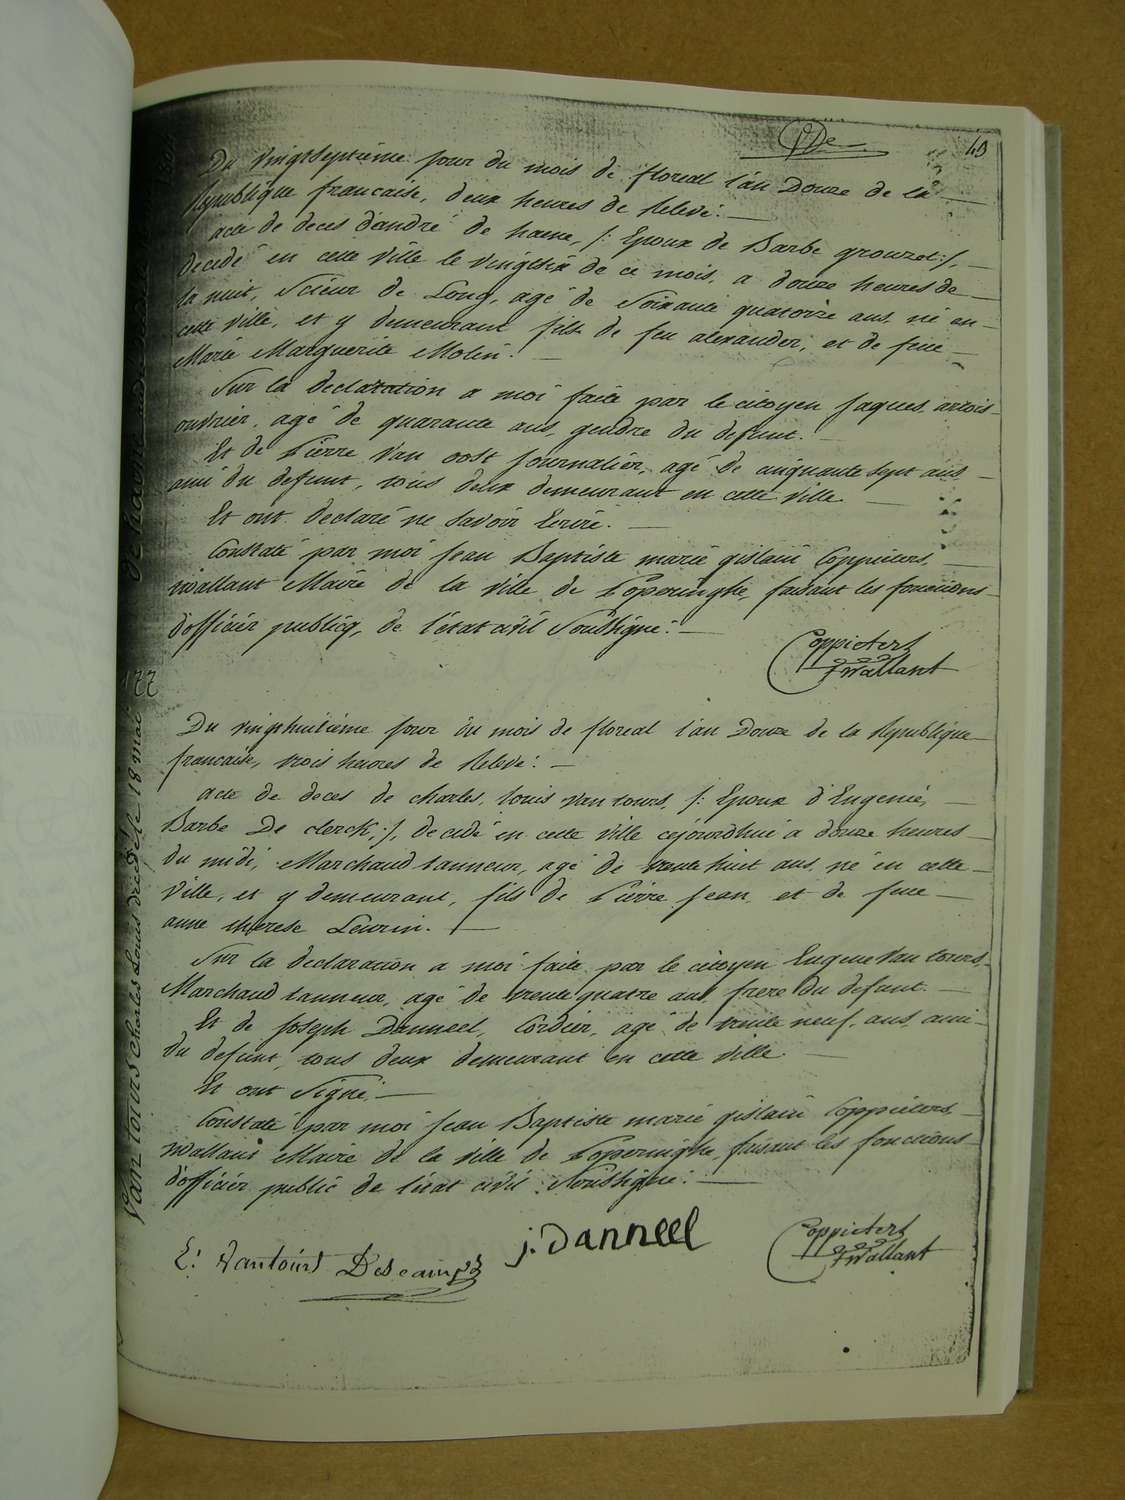 40
Du vingtseptième jour du mois de floreal l'an Douze de la
Republique francaise, deux heures de Relevé.
acte de deces d'andré de haene, /: Epoux de Barbe grouzet :/,
decedé en cette ville le vingtsix de ce mois, a douze heures de
la nuit, Scieur de Long, agé de Soixante quatorze ans, né en
cette ville, et y demeurant fils de feu alexander, et de feue
Marie Marguerite Molin.
Sur la declaration a moi faite par le citoyen Jaques artois
ouvrier, agé de quarante ans, gendre du defunt.
Et de Pierre Van oost Journalier, agé de cinquante sept ans
ami du defunt, tous deux demeurant en cette ville
Et ont declaré ne savoir Ecrire.
Constaté par moi Jean Baptiste marie gislain Coppieters
wallant Maire de la ville de Poperinghe, faisant les fonctions
d'officier publicq, de l'état civil Soussigné.
Coppieters
wallant
122
Du vingthuitième jour du mois de floreal l'an Douze de la Republique
francaise, trois heures de Relevé.
acte de deces de charles, louis van tours, /: Epoux d'Eugenie,
Barbe De clerck :/, decedé en cette ville cejourdhui a douze heures
du midi, Marchand tanneur, agé de trente huit ans, né en cette
ville, et y demeurant, fils de Pierre Jean, et de feue
anne therese Leurin.
Sur la declaration a moi faite par le citoyen Eugene Van tours,
Marchand tanneur, agé de trente quatre ans, frere du defunt.
Et de Joseph Danneel, Cordier, agé de trente neuf ans, ami
du defunt, tous deux demeurant en cette ville.
Et ont Signé.
Constaté par moi Jean Baptiste marie gislain Coppieters
wallant Maire de la ville de Poperinghe, faisant les fonctions
d'officier public de l'état civil Soussigné.
Van tours Charles Louis décédé le 18 mai
E: Vantours Descamps
j. Danneel
Coppieters
wallant